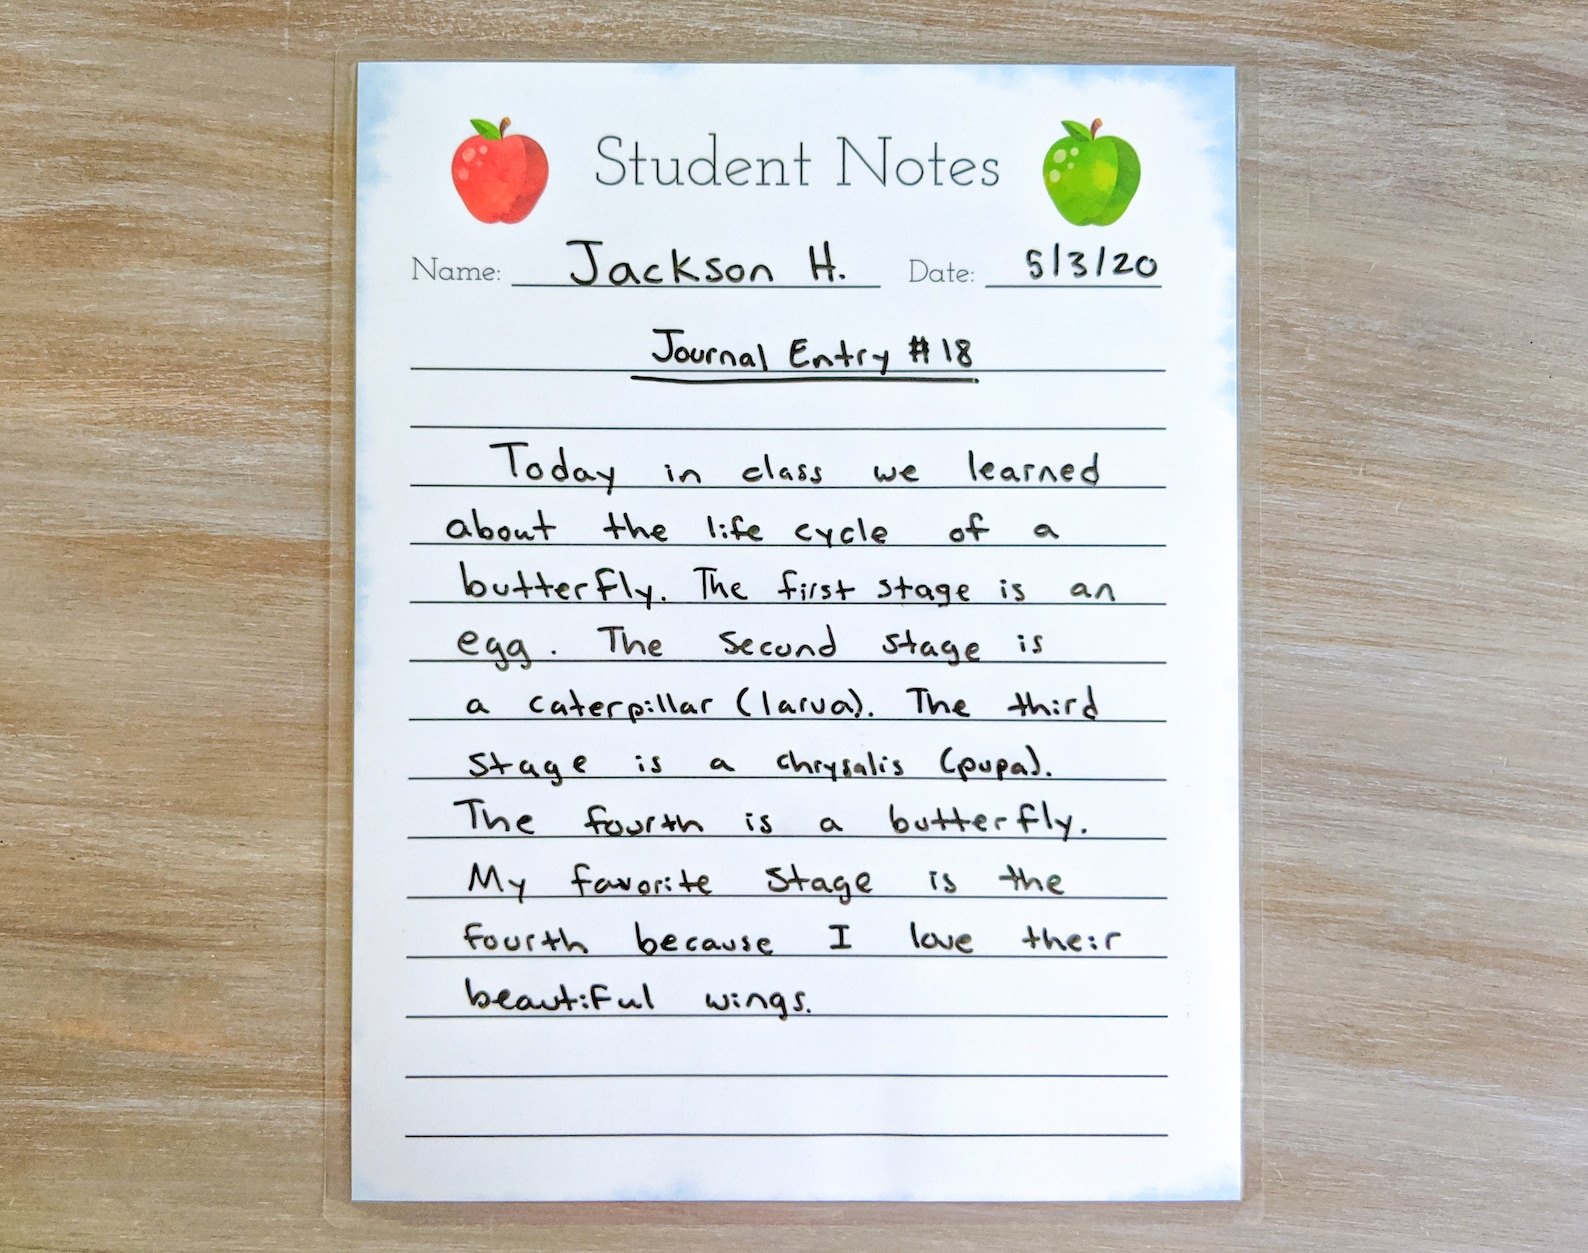 Student Notes
Name: Jackson H. Date: 5/3/20
Journal Entry #18
Today in class we learned
about the life cycle of a
butterfly. The first stage is an
egg. The second stage is
a caterpillar (larva). The third
stage is a chrysalis (pupa).
The fourth is a butterfly.
My favorite stage is the
fourth because I love their
beautiful wings.